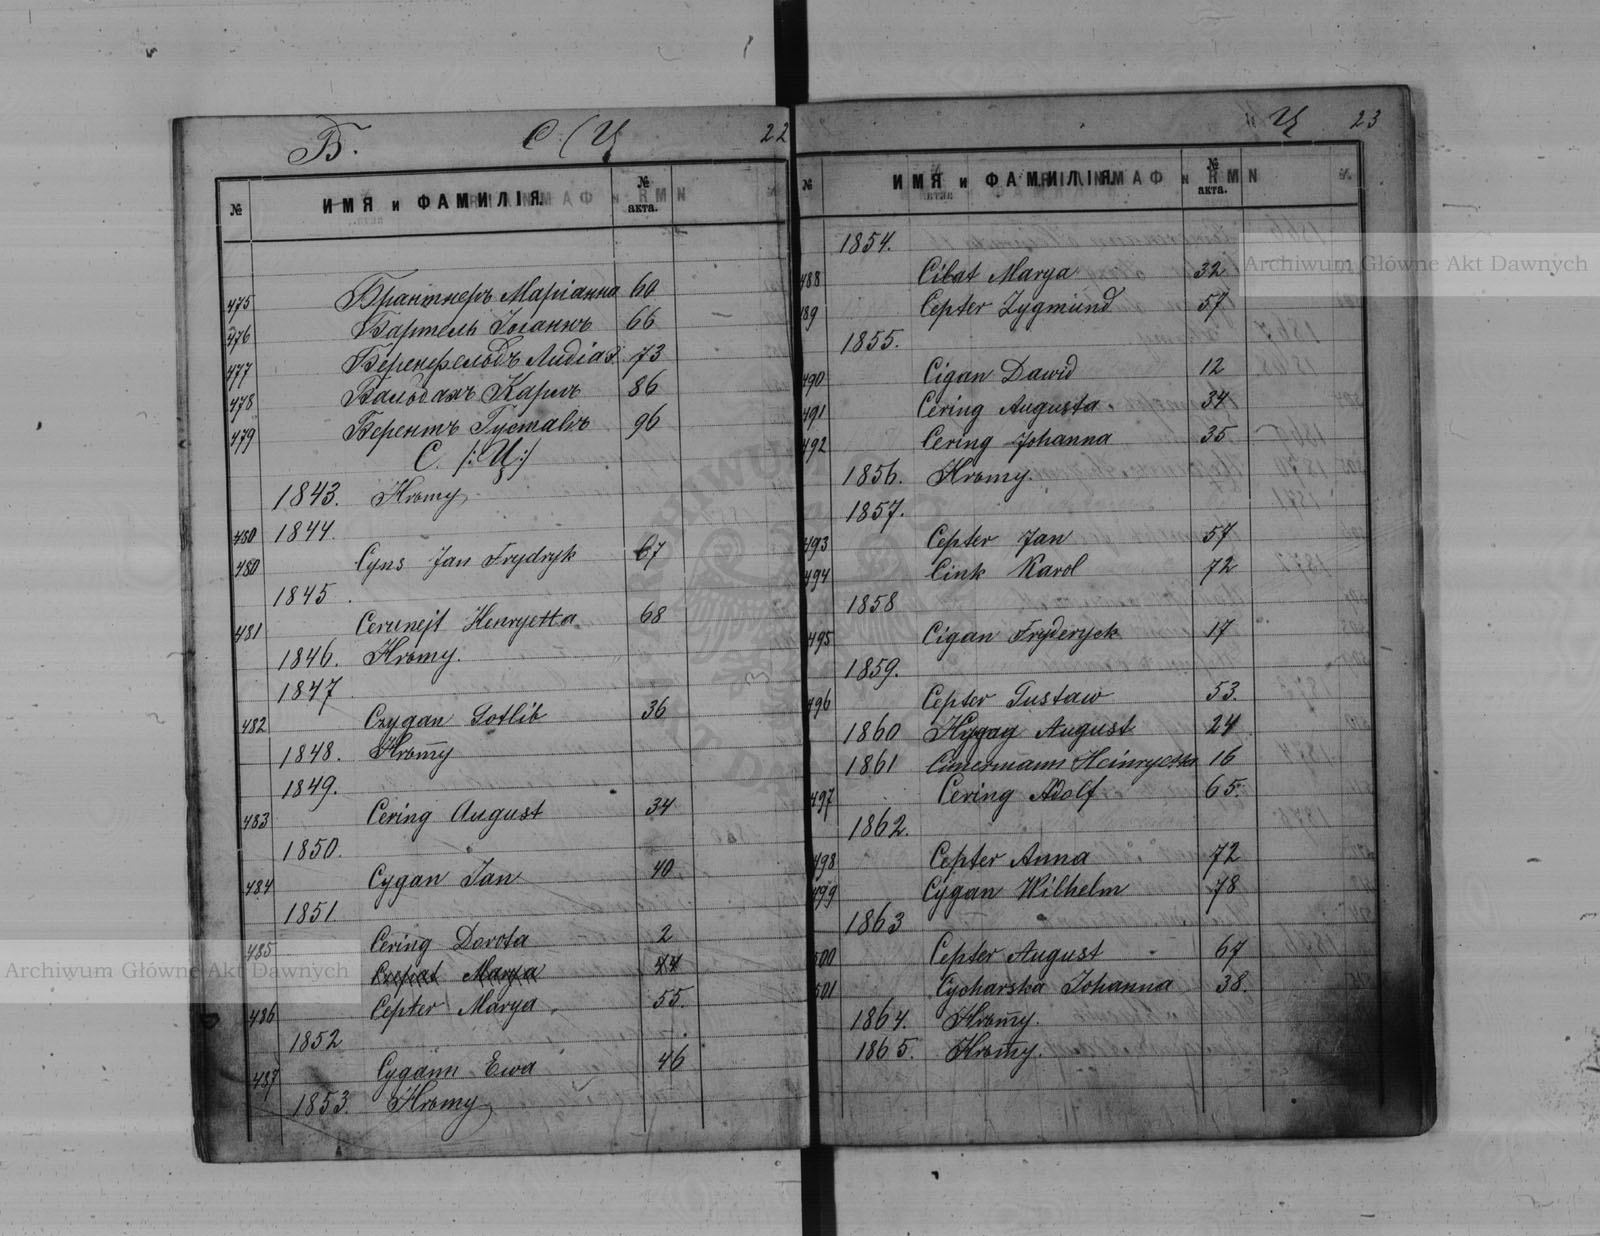 Б. С. (Ц 22
№ ИМЯ и ФАМИЛІЯ. № акта.
475 Брантнеръ Маріанна 60
476 Бартель Іоганнъ 66
477 Беренфельдъ Лидія 73
478 Вальданъ Карлъ 86
479 Берентъ Густавъ 96
С. /:Ц:/
1843. Нѣту
480 1844.
480 Cyns Jan Frydryk 67
1845.
481 Cerunejt Henryetta 68
1846. Нѣту.
1847
482 Czygan Gotlib 36
1848. Нѣту
1849.
483 Cering August 34
1850.
484 Cygan Jan 40
1851
485 Cering Dorota 2
Marya 44
486 Cepter Marya 55.
1852
487 Cygann Ewa 46
1853. Нѣту
Ц 23
№ ИМЯ и ФАМИЛІЯ. № акта.
1854.
488 Cibat Marya 32
489 Cepter Zygmund 57
1855.
490 Cigan Dawid 12
491 Cering Augusta. 34
492 Cering Johanna 35
1856. Нѣту.
1857.
493 Cepter Jan 57
494 Cink Karol 72
1858
495 Cigan Fryderyck 17
1859.
496 Cepter Gustaw 53.
1860 August 24
1861 Cimermann Heinryetta 16
497 Cering Adolf 65.
1862.
498 Cepter Anna 72
499 Cygan Wilhelm 78
1863
500 Cepter August 67
501 Cycharska Johanna 38.
1864. Нѣту.
1865. Нѣту.
Archiwum Główne Akt Dawnych
Archiwum Główne Akt Dawnych